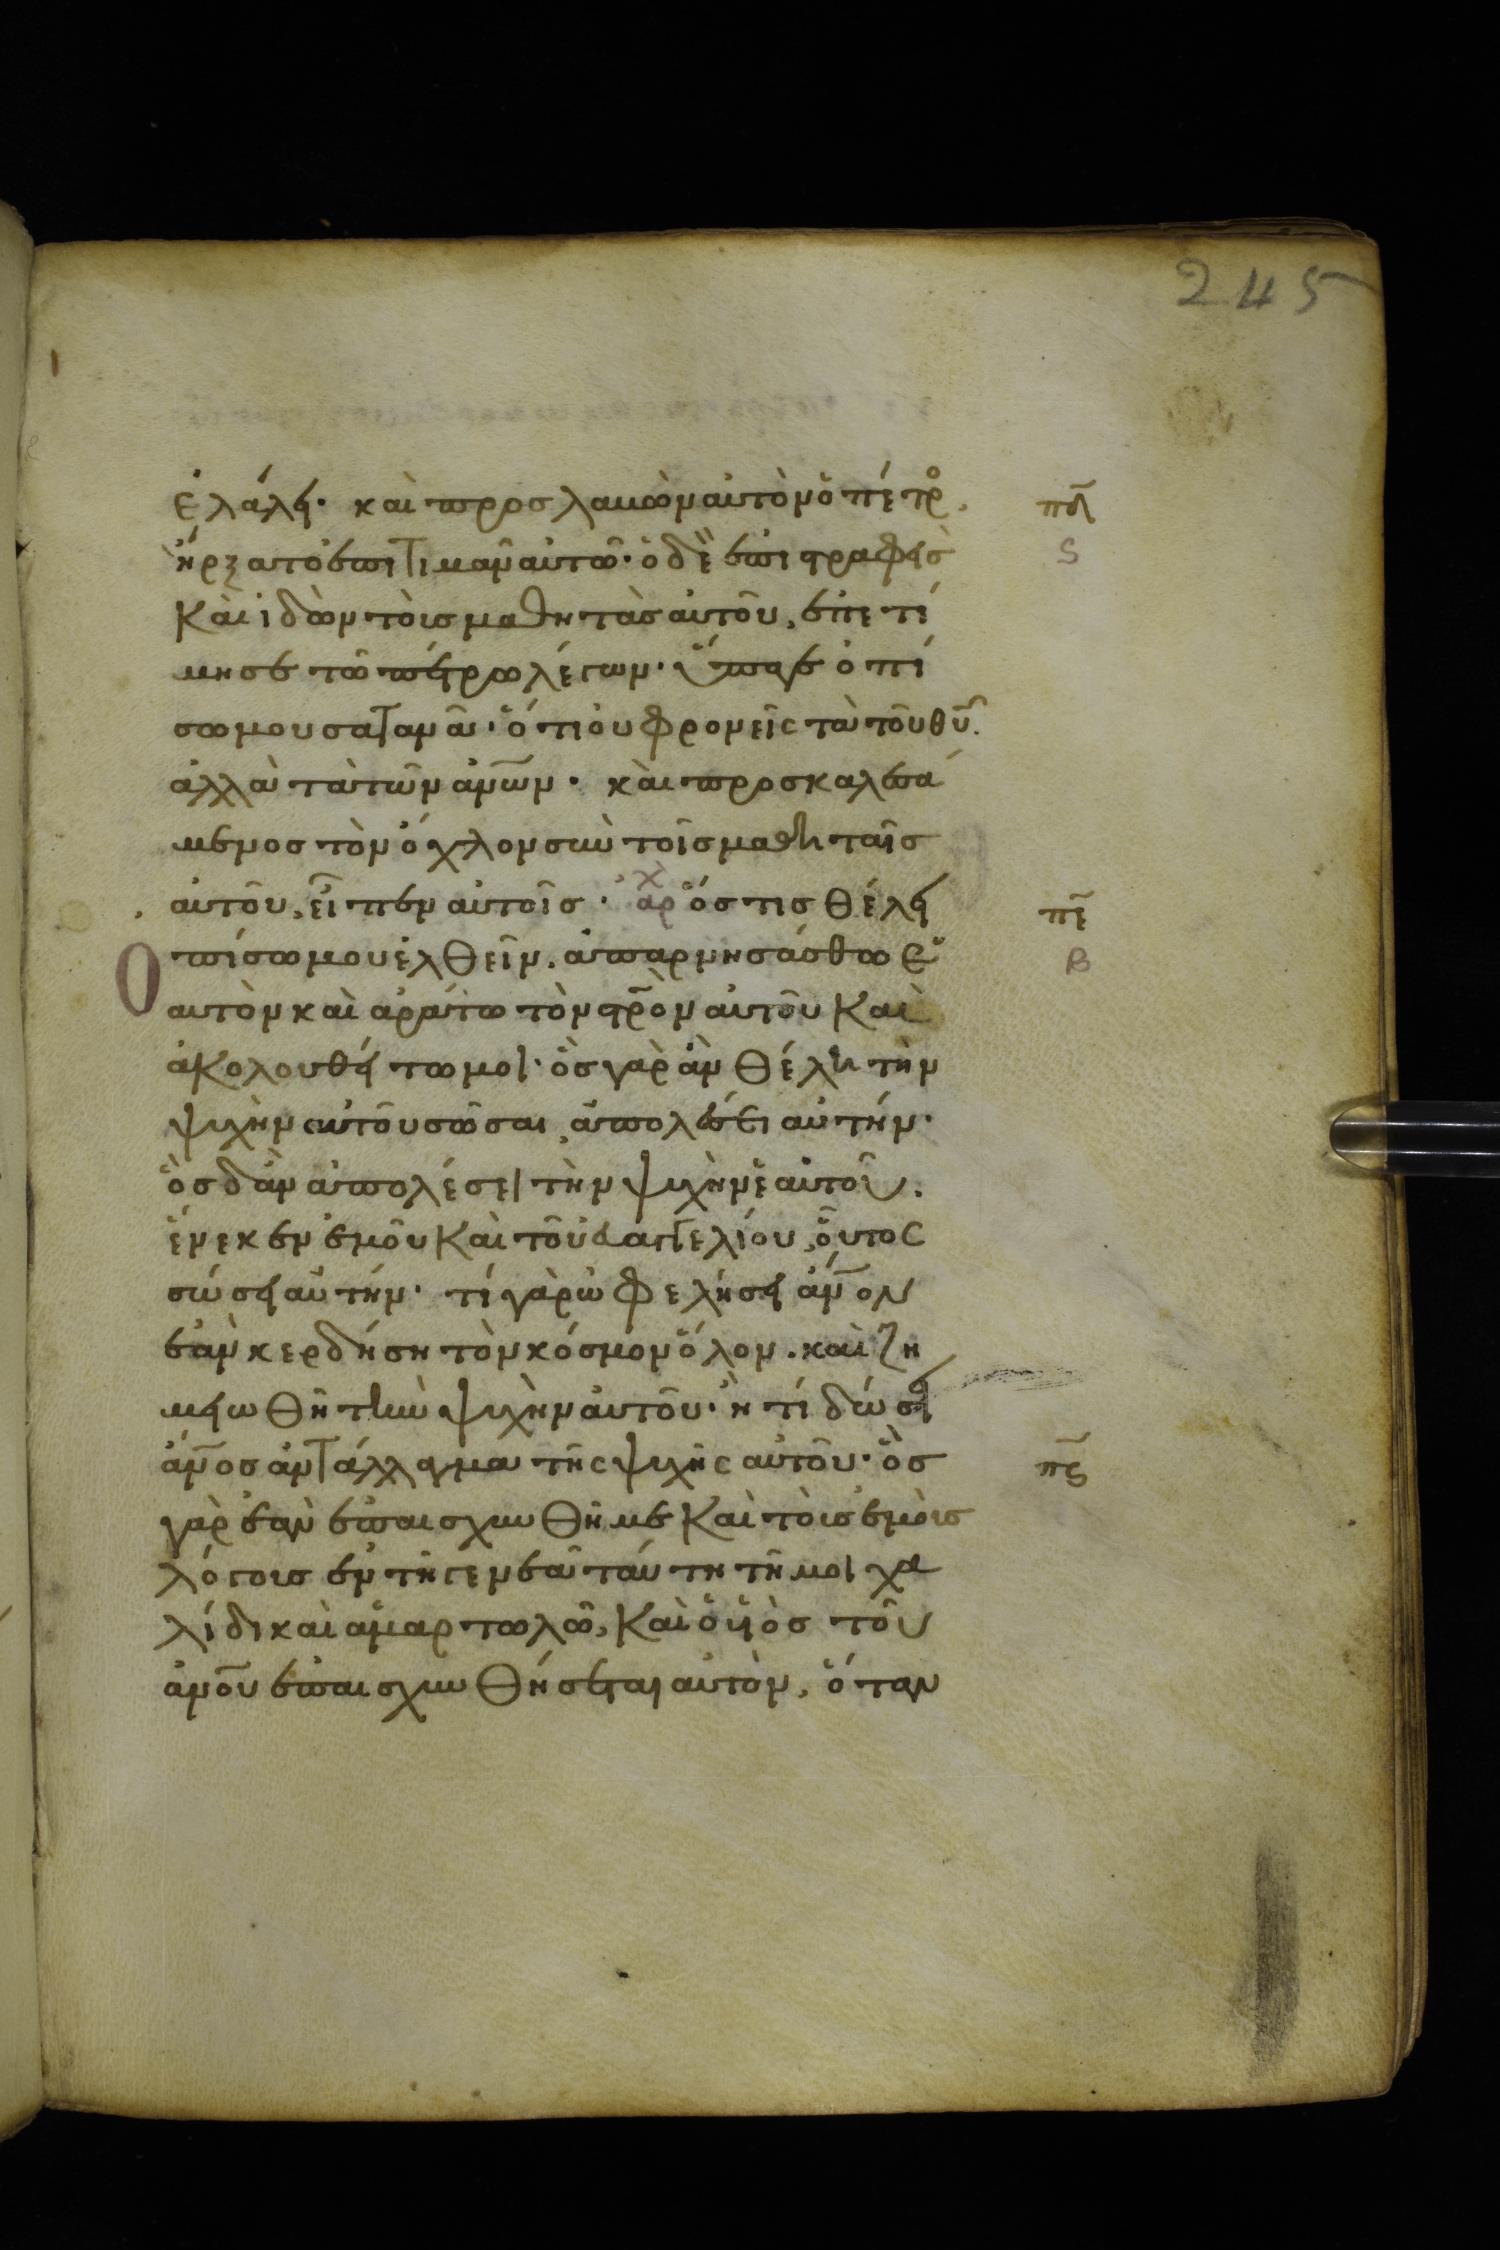 245
ἐλάλει· καὶ προσλαβὼν αὐτὸν ὁ πέτρ̊, πδ̄
ἤρξατο ἐπιτιμᾶν αὐτῶ· ὁ δὲ ἐπιστραφεὶσ ς
καὶ ἰδὼν τοὺσ μαθητὰσ αὐτοῦ, ἐπετί
μησε τῶ πέτρω λέγων· ὕπαγε ὀπί
σω μου σατανᾶ· ὅτι οὐ φρονεῖς τὰ τοῦ θῦ.
ἀλλὰ τὰ τῶν ἀν̅ων· καὶ προσκαλεσά
μενοσ τὸν ὄχλον σὺν τοῖσ μαθηταῖσ
αὐτοῦ, εἶπεν αὐτοῖσ· ἀρχ ὅστισ θέλει πε̄
ὀπίσω μου ἐλθεῖν, ἀπαρνησάσθω ἑ β
αυτὸν καὶ ἀράτω τὸν στρ̅ον αὐτοῦ καὶ
ἀκολουθείτω μοι· ὃσ γὰρ ἂν θέλη τὴν
ψυχὴν αὐτοῦ σῶσαι, ἀπολέσει αὐτήν·
ὃσ δ ἂν ἀπολέσει τὴν ψυχὴν ἑαυτοῦ,
ἕνεκεν ἐμοῦ καὶ τοῦ εὐαγγελίου, οὗτοσ
σώσει αὐτήν· τί γὰρ ὠφελήσει ἄν̅ον
ἐὰν κερδήση τὸν κόσμον ὅλον. καὶ ζη
μιωθῆ τὴν ψυχὴν αὐτοῦ· ἢ τί δώσει
ἄν̅οσ ἀντάλλαγμα τῆς ψυχῆς αὐτοῦ· ὃσ πϛ̄
γὰρ ἐὰν ἐπαισχυνθῆ με καὶ τοὺσ ἐμοὺσ
λόγουσ ἐν τῆ γενεᾶ ταύτη τῆ μοιχα
λίδι καὶ ἁμαρτωλῶ, καὶ ὁ υἱὸσ τοῦ
ἀν̅ου ἐπαισχυνθήσεται αὐτὸν, ὅταν